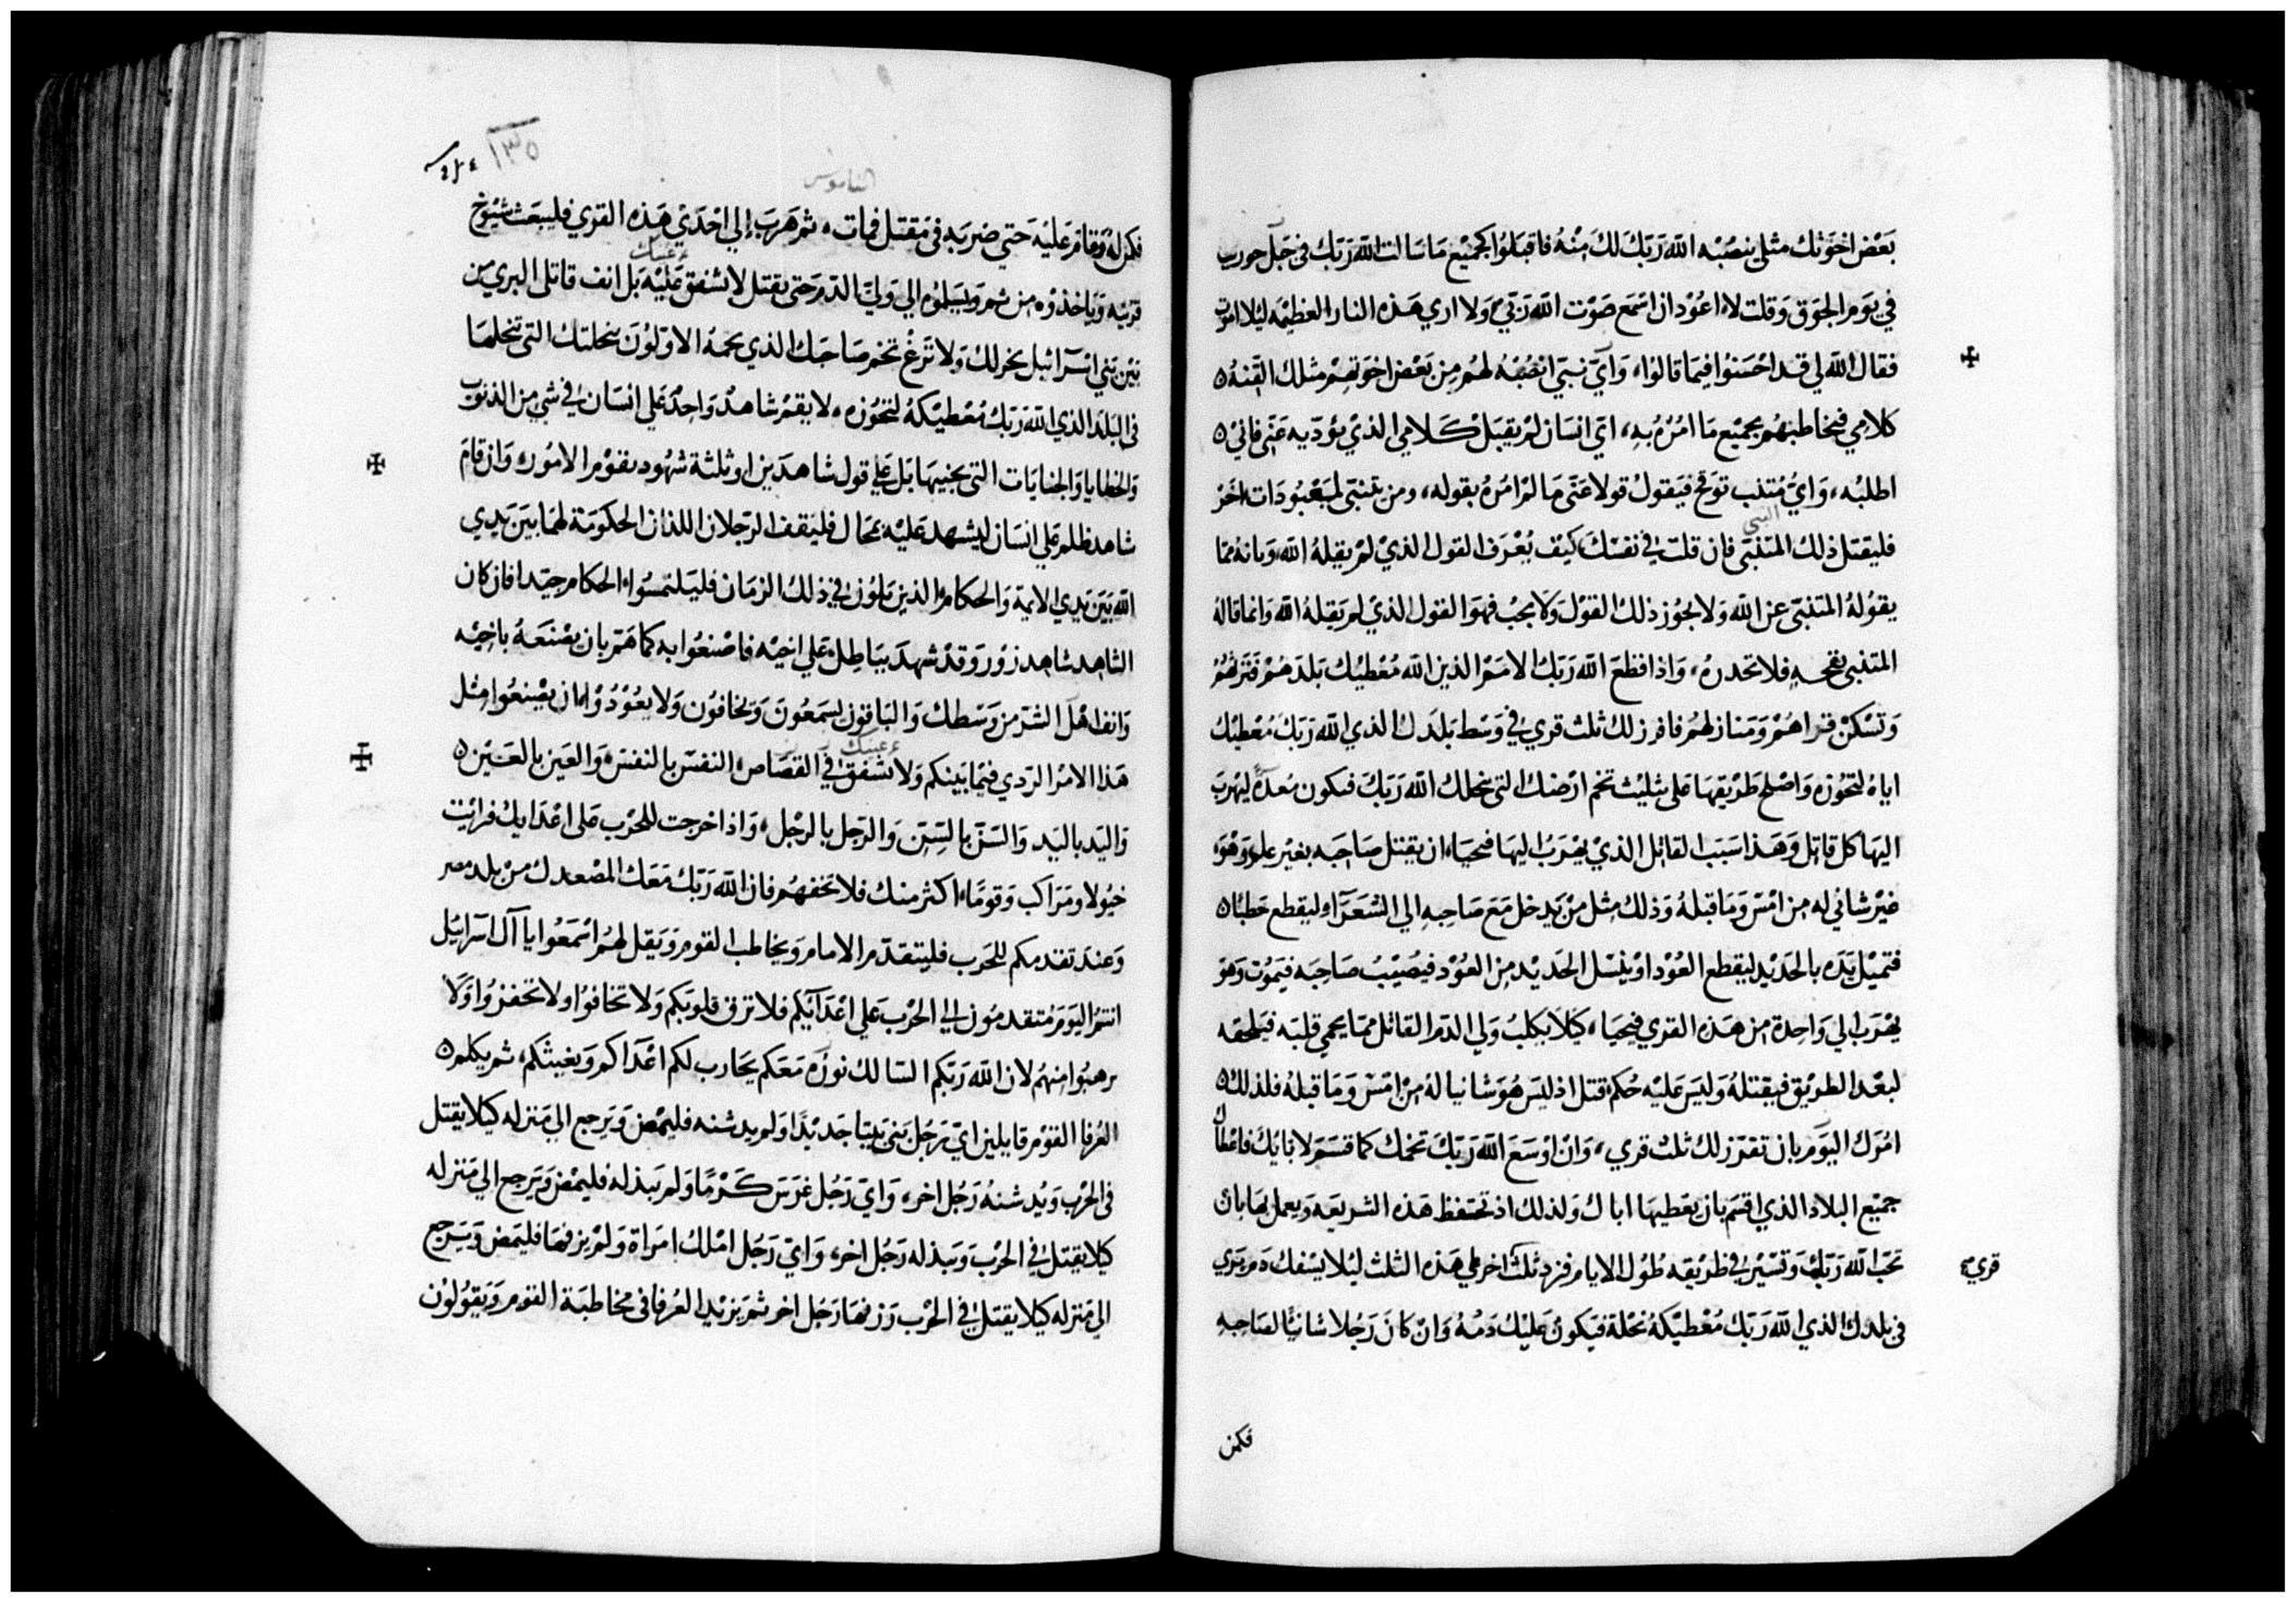 بَعْض اخوَتك مثلي ينصُبْه الله رَبّكَ لكَ مِنْهُ فاقبَلوُا كجميْع مَا سَالت الله رَبّك في جَبَل حوريب
في يَوم الجَوق وَقلت لا اعُوْد ان اسْمَع صَوْت الله رَبّي وَلا اري هَذه النار العَظيْمَه ليُلا اموُت
فقال الله لي قد احْسَنوُا فيمَا قالوُا، وَايّ نبيّ انْصُبْهُ لهُم مِن بَعْض اخوَتهِمْ مثلك القنهُ
كلامي فيخاطبهُم بجميْع مَا امُرُهُ بهِ، ايّ انسَان لمْ يقبَلْ كَلامي الذيْ يؤدّيه عَنّي فانيْ
اطلبُه، وَايّ مُتنب توَقح فيَقولُ قولا عَنّي مَا لمْ امُرْهُ بقوله، ومن يَتنبّي لمَعْبُودَات اخَرْ
النبي
فليقتل ذلك المتنبّي فان قلتَ في نفسْكَ كيْف يُعْرَف القول الذيْ لمْ يقلهُ الله، وَبانهُ ممّا
يقوُلهُ المتنبّي عن الله وَلا يجوُز ذلك القوْل وَلا يجبْ فهوَ القول الذيْ لم يَقلهُ الله وَانما قالهُ
المتنبي بقحه فلا تحدرهُ، وَاذا قطعَ الله رَبّك الامَمْ الذين الله مُعْطيْك بَلدَهُمْ فتَرثهُمْ
وَتسْكنْ قراهُمْ وَمَنازلهُم فافرز لك ثلث قري في وَسَط بَلدَك الذي الله رَبّكَ مُعْطيْك
اياهُ لتحُوْزه وَاصْلح طَرْيقهَا عَلي تثليْث تخم ارْضك التي ينحلك الله رَبّكَ فتكون مُعدّهً ليَهربَ
اليهَا كل قاتل وَهَذا سَبَب القاتل الذيْ يهْرَبُ اليهَا فيحيَا، ان يَقتل صَاحِبَه بغيْر علم وَهْوَ
غيْر شاني له من امْسَ وَمَا قبلهُ وَذلك مِثل مَنْ يَدخل مَعَ صَاحِبه الي الشعَرَا وليقطع حَطبًا
فتميْل يَدَه بالحَديْد ليقطع العُوْد اوْ ينسْل الحَديْد مِن العُوْد فيُصيْبُ صَاحِبَه فيَموُت وَهوَ
يهْرَب الي وَاحِدة مِن هَذه القري فيحيَا، كيَلا يَكلبُ وَلي الدم القاتل ممّا يحمي قلبَه فيلحقه
لبعْد الطريْق فيقتلهُ وَليسَ عَليْه حُكم قتل اذ ليسَ هُوَ شانيا لهُ مِنْ امْسَ وَمَا قبلهُ فلذلك
امُرَك اليَوم بان تفرز لك ثلث قري، وَانْ اوْسَعَ الله رَبّكَ تخمك كما قسَمَ لابايْك فاعْطاك
جميْع البلاد الذي اقسَم بان يَعطيهَا اباك وَلذلك اذ تحتفظ هَذه الشريعَه وَيعمل بهَا بان
تحبّ الله رَبّك وَتسيْر في طَريْقه طوُل الايام فزد ثلث اخر علي هَذه الثلث ليُلا يسْفك دَم بَري
قري
في بلدك الذي الله رَبّك مُعْطيْكهُ نحْلة فيَكون عَليْك دَمهُ وَانْ كانَ رَجُلا شانيًا لصَاحِبهِ
فكمن
١٣٥
الناموس
فكمن لهُ وَقامَ عَليْه حَتي ضرَبَه في مَقتل فمات، ثم هَربَ إلي احْدَيْ هَذه القري فليبعَث شيُوْخ
عينك
قريَته وَيَاخذوُه مِن ثم ويسَلموُه الي وَليّ الدّم حَتي يقتل لا تشفق عَليْه بَل انف قاتل البري من
بَيْن بَني اسْرَائيل يخر لك وَلا تزغ تخم صَاحبَك الذي يحمهُ الاوّلوُنَ بنحلتك التي تنحلهَا
في البَلد الذي الله رَبّك مُعْطيْكهُ لتحُوْزه، لا يقمْ شاهدْ وَاحِدْ عَلي انسَان في شي من الذنوُب
وَالخطايا وَالجنايَات التي يجنيهَا بَل عَلي قول شاهدَين او ثلثة شهُود يقوْم الامُور وَان قامَ
شاهد ظلم عَلي انسَان ليشهد عَليْه بمحَال فليَقف الرّجلان اللذان الحكومَة لهمَا بَينَ يَدي
الله بَيْن يَدي الايمة وَالحكام الذين يَلوُن في ذلك الزمَان فليَلتمسُوا الحكام جيّدا فان كان
الشاهد شاهد زوُر وَقدْ شهدَ ببَاطِل عَلي اخيْه فاصْنعُوا به كما هَمّ بان يصْنَعَهُ باخيْه
وَانف اهْل الشرّ من وَسْطك وَالبَاقوُن يسمَعُونَ وَيخافوُن وَلا يعُوْدُوْا ان يصْنعُوا مِثل
عينك
هَذا الامْر الرّدي فيْمَا بَينكم وَلا تشفقْ في القصَاص، النفسَ بالنفسَ، وَالعَين بالعَيْن
وَاليَد باليَد وَالسّنّ بالسّنّ وَالرّجل بالرّجل، وَاذا خرجت للحْرب عَلي اعْدَايك فرايْت
خيُولا ومَرَاكب وَقومًا اكثر منك فلا تخفهُم فان الله رَبّكَ مَعَك المصْعدك منْ بلد مصر
وَعندَ تقدمكم للحَرب فليتقدّم الامام وَيخاطب القوم وَيَقل لهُم اسْمَعُوا يا آل اسرَائيْل
انتمُ اليَوم مُتقدموُن الي الحرْب عَلي اعْدَآئكم فلا ترق قلوبَكم وَلا تخافوُا ولا تحفزوُا وَلا
ترهبُوا منهُم لان الله رَبكم السّالك نوُرَه مَعَكم يحَارب لكم اعْدَاكم وَيغيثكم، ثم يكلم
العُرفا القوْم قايلين ايّ رَجُل بَني بَيتًا جَديْدًا وَلم يدشنه فليمْض وَيَرجع الي مَنزله كيلا يقتل
في الحرْب وَيُدشنهُ رَجُل اخر، وَايّ رَجُل غرَسَ كَرْمًا وَلم يَبذله فليمْض وَيَرجع الي مَنزله
كيلا يقتلْ في الحرْب وَيبَذله رَجُل اخر، وَايّ رَجُل امْلك امرَاة وَلمْ يزفهَا فليمَض وَيَرجع
الي مَنزله كيلا يقتلْ في الحرْب وَزفهَا رَجُل اخر ثم يَزيْد العُرفا في مخاطبَة القوم وَيَقوُلوُن